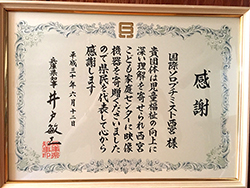 感謝
国際ソロプチミスト西宮 様
貴団体は児童福祉の向上に
深い理解を寄せられ西宮
こども家庭センターに映像
機器を寄贈くださいました
ので県民を代表して心から
感謝します
平成三十年六月十二日
兵庫県知事 井戸敏三